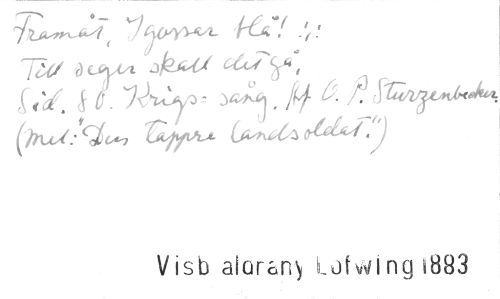 Framåt, I gossar blå! :,:
Till seger skall det gå,
Sid. 80. Krigs-sång, af O. P. Sturzenbecker.
(Mel: "Den tappre landsoldat.")
Visb aldrany Lofwing 1883